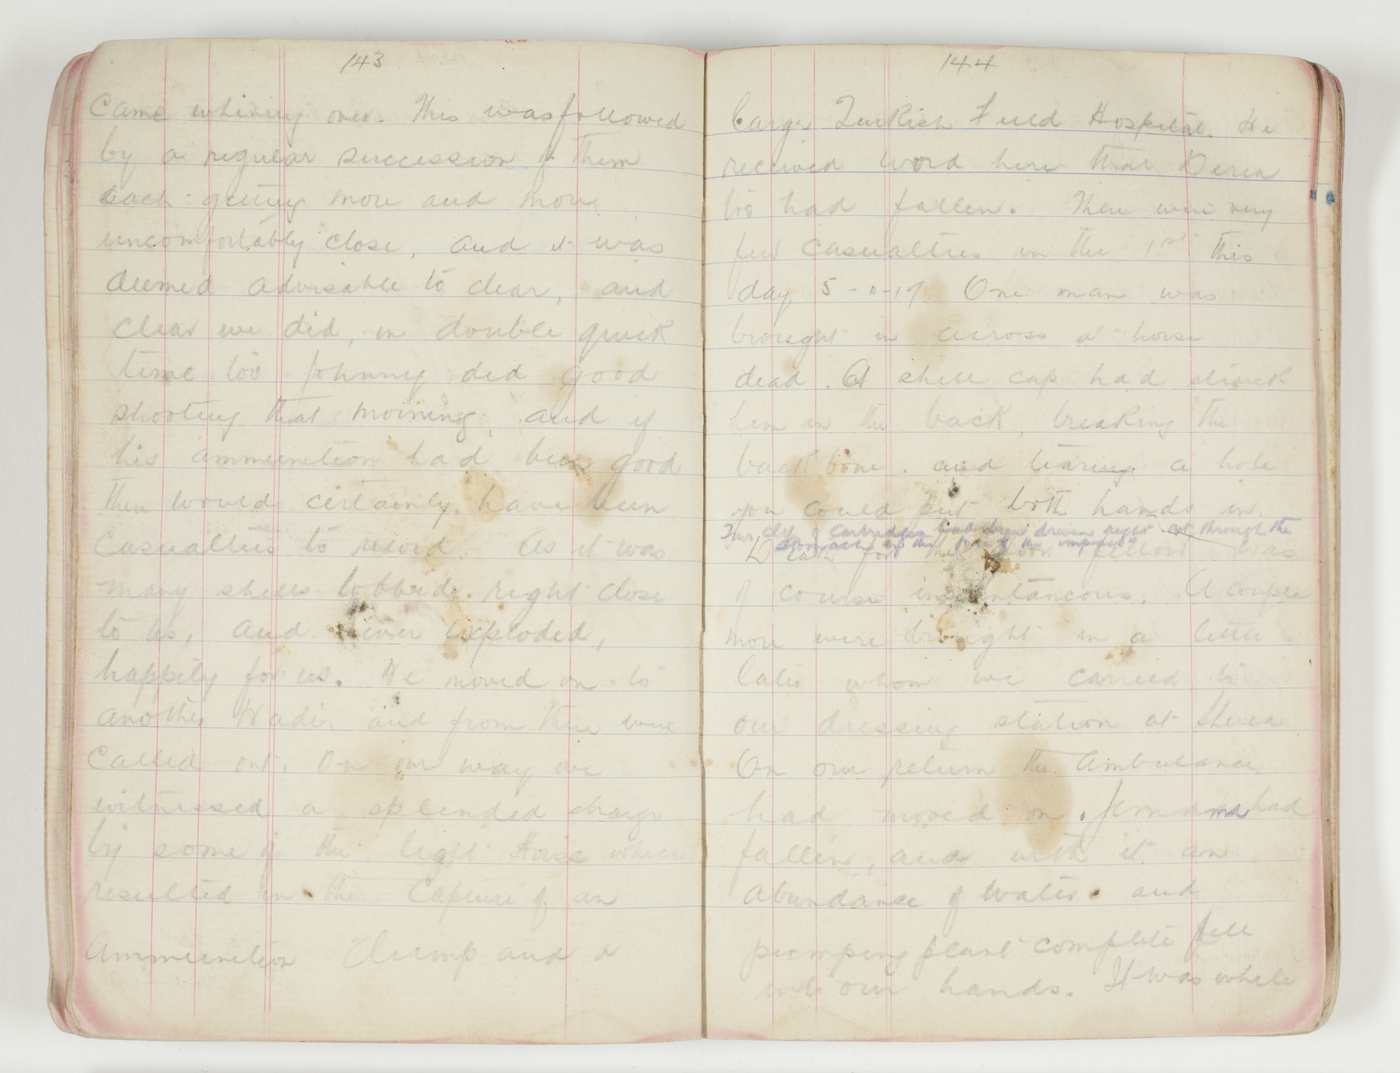 143
Came whining over. This was followed
by a regular succession of them
each getting more and more
uncomfortably close, and it was
deemed advisable to clear, and
clear we did, in double quick
time too Johnny did good
shooting that morning, and if
his ammunition had been good
there would certainly have been
casualties to record. As it was
many shells lobbed right close
to us, and never exploded,
happily for us. We moved on to
another Wadi, and from there were
called out. On our way we
witnessed a splendid charge
by some of the light Horse which
resulted in the Capture of an
Ammunition Dump and a
144
large Turkish Field Hospital. We
received word here that
had fallen. There were very
few casualties in the 1st this
day 5-11-17. One man was
brought in across a horse
dead. A shell cap had struck
him in the back, breaking the
back bone and tearing a hole
you could put both hands in.
Two clips of Cartridges had been driven right out through the
stomach by the force of the
Death for the poor fellow was
of course instantaneous. A couple
more were brought in a little
later whom we carried to
our dressing station at Sheria
On our return the Ambulance
had moved on. Jemmama had
fallen, and with it an
abundance of water and
pumping plant complete fell
into our hands. It was while